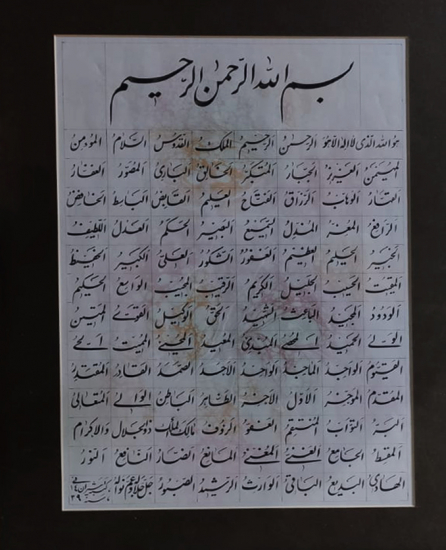 بسم الله الرحمن الرحیم
هو الله الذی لا اله الا هو الرحمن الرحیم الملک القدوس السلام المؤمن
المهیمن العزیز الجبار المتکبر الخالق الباری المصور الغفار
القهار الوهاب الرزاق الفتاح العلیم القابض الباسط الخافض
الرافع المعز المذل السمیع البصیر الحکم العدل اللطیف
الخبیر الحلیم العظیم الغفور الشکور العلی الکبیر الحفیظ
المقیت الحسیب الجلیل الکریم الرقیب المجیب الواسع الحکیم
الودود المجید الباعث الشهید الحق الوکیل القوی المتین
الولی الحمید المحصی المبدی المعید المحیی الممیت الحی
القیوم الواجد الماجد الواحد الاحد الصمد القادر المقتدر
المقدم المؤخر الاول الاخر الظاهر الباطن الوالی المتعالی
البر التواب المنتقم العفو الرؤف مالک الملک ذوالجلال والاکرام
المقسط الجامع الغنی المغنی المانع الضار النافع النور
الهادی البدیع الباقی الوارث الرشید الصبور جل جلاله وعم نواله